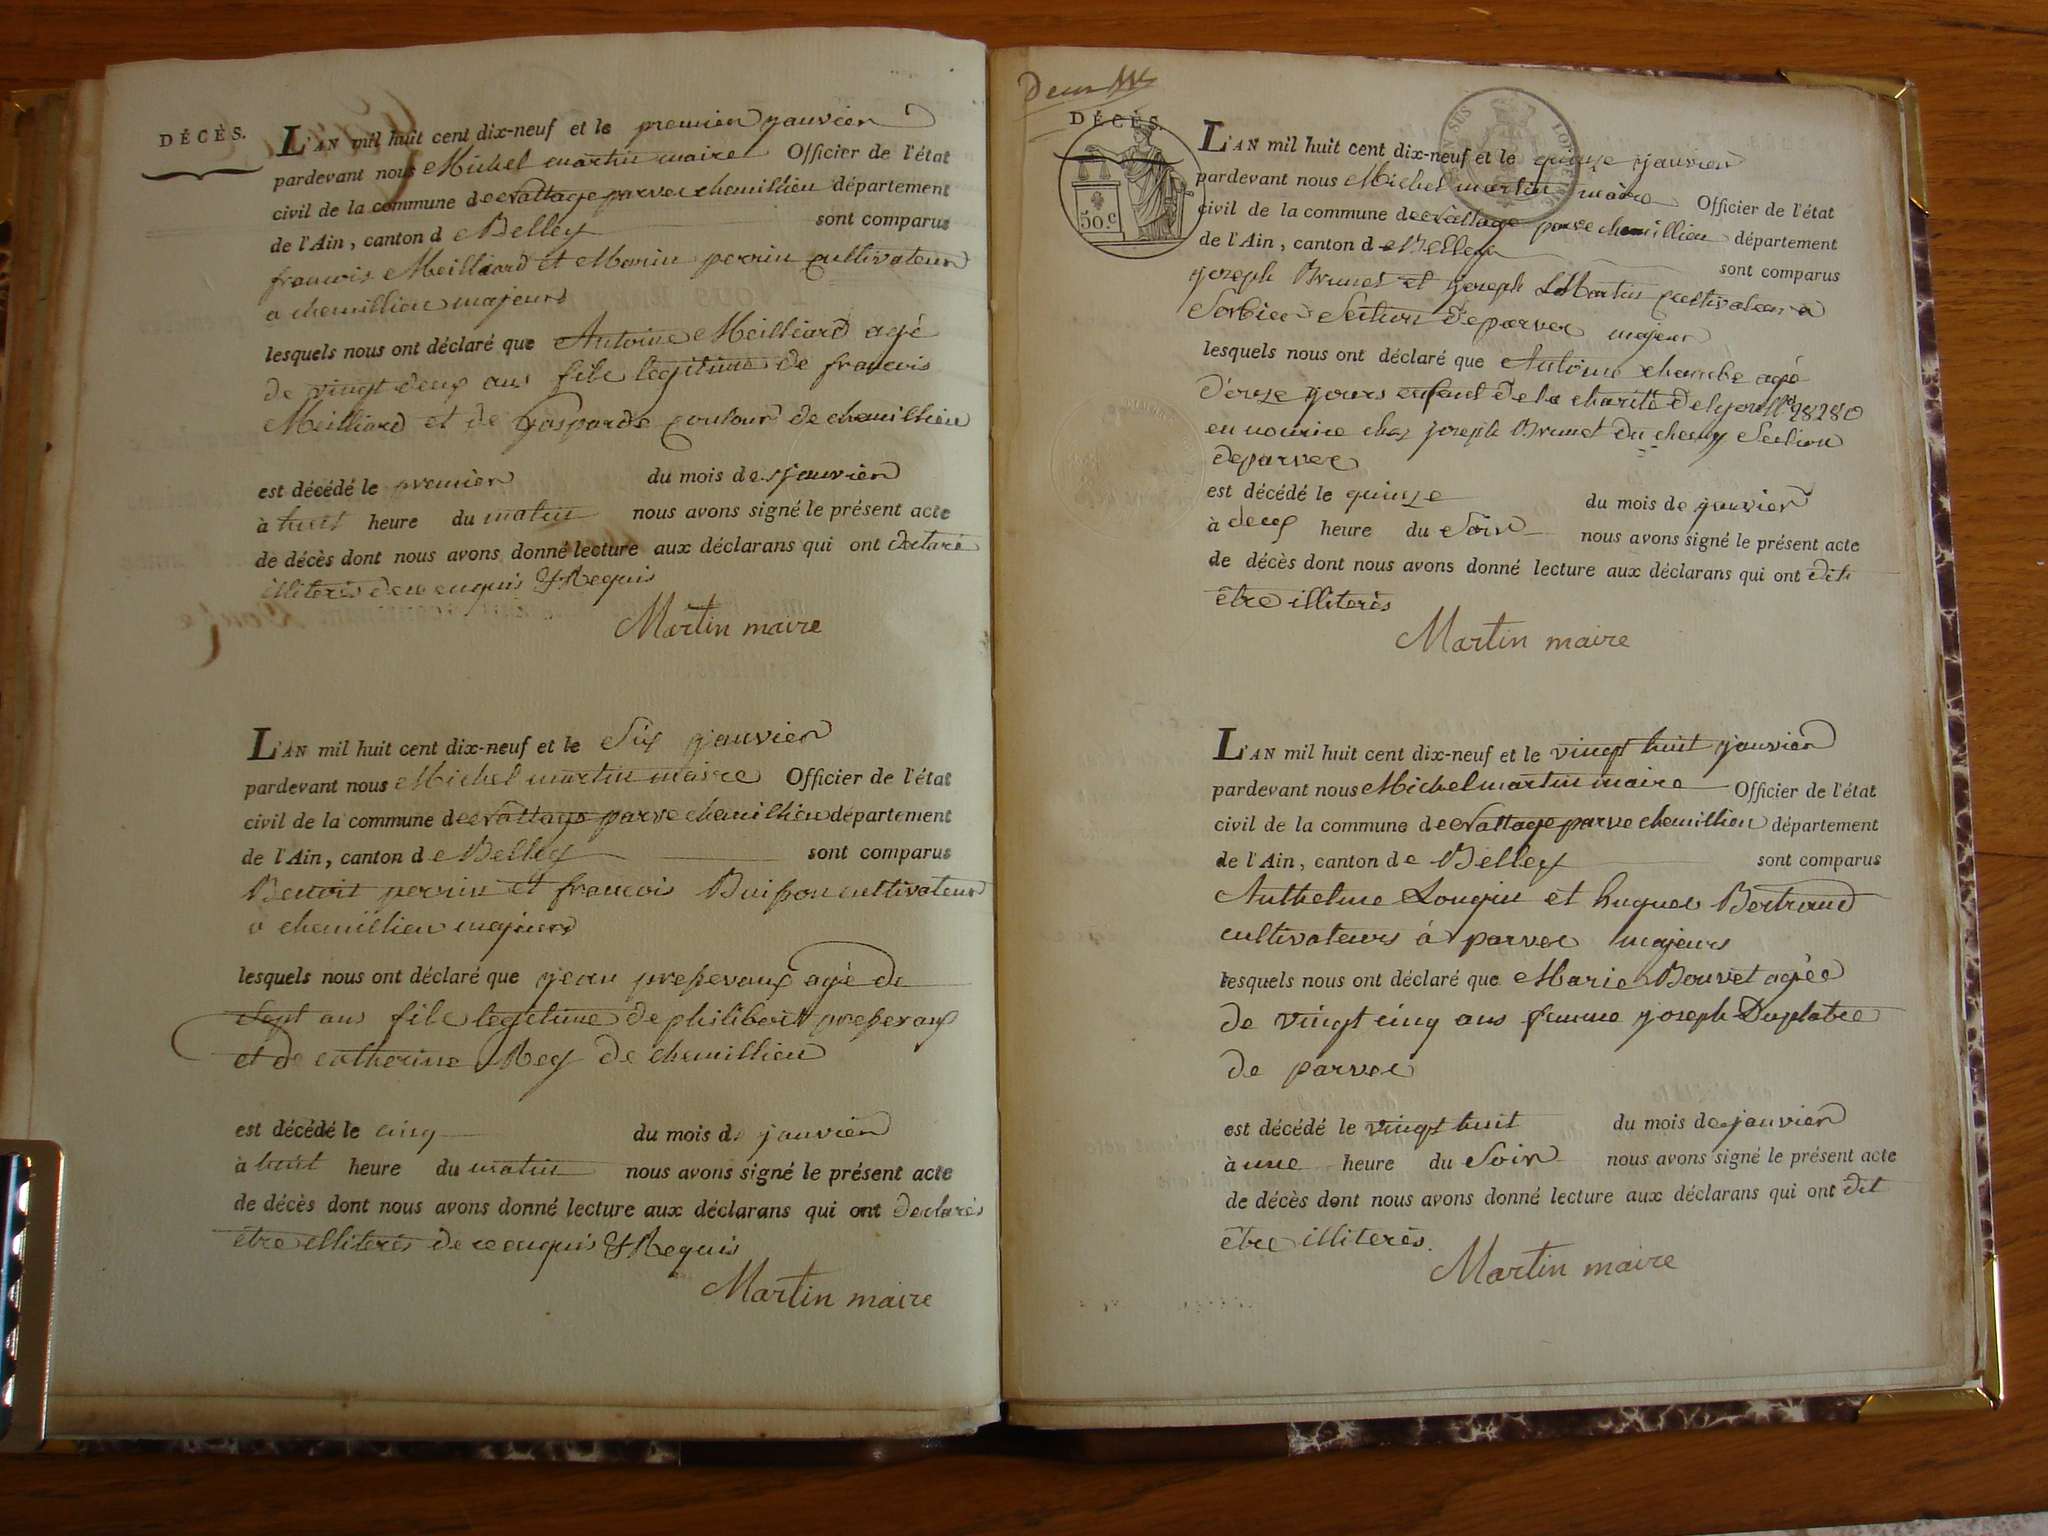 DÉCÈS.
L'AN mil huit cent dix-neuf et le premier janvier
pardevant nous Michel martin maire Officier de l'état
civil de la commune de Nattage parve chemillieu département
de l'Ain, canton de Belley sont comparus
francois Meilliard et Marin perrin cultivateur
a chemillieu majeurs
lesquels nous ont déclaré que Antoine Meilliard agé
de vingt deux ans fils legitime de francois
Meilliard et de Gasparde coutour de chemillieu
est décédé le premier du mois de janvier
à huit heure du matin nous avons signé le présent acte
de décès dont nous avons donné lecture aux déclarans qui ont declaré
illiterés de ce enquis & Requis
Martin maire
L'AN mil huit cent dix-neuf et le Six janvier
pardevant nous Michel martin maire Officier de l'état
civil de la commune de Nattage parve chemillieu département
de l'Ain, canton de Belley sont comparus
Benoit perrin et francois Buisson cultivateur
a chemillieu majeurs
lesquels nous ont déclaré que jean presseveaux agé de
Sept ans fils legitime de philibert
et de catherine Rey de chemillieu
est décédé le cinq du mois de janvier
à huit heure du matin nous avons signé le présent acte
de décès dont nous avons donné lecture aux déclarans qui ont declarés
être illiterés de ce enquis & Requis
Martin maire
Deux
DÉCÈS.
50.c
L'AN mil huit cent dix-neuf et le quinze janvier
pardevant nous Michel martin maire Officier de l'état
civil de la commune de Nattage parve chemillieu département
de l'Ain, canton de Belley sont comparus
joseph Brunet et joseph Martin cultivateur a
Sorbier Section de parves majeur
lesquels nous ont déclaré que Antoine chambe agé
d'onze jours enfant de la charité de lyon N° 28280
en nourice chez joseph Brunet du chesney Section
de parves
est décédé le quinze du mois de janvier
à deux heure du Soir nous avons signé le présent acte
de décès dont nous avons donné lecture aux déclarans qui ont dit
être illiterés
Martin maire
L'AN mil huit cent dix-neuf et le vingt huit janvier
pardevant nous Michel martin maire Officier de l'état
civil de la commune de Nattage parve chemillieu département
de l'Ain, canton de Belley sont comparus
Anthelme Longin et hugues Bertrand
cultivateurs à parves majeurs
lesquels nous ont déclaré que Marie Bouvet agée
de vingt cinq ans femme joseph Duplatre
de parves
est décédé le vingt huit du mois de janvier
à une heure du Soir nous avons signé le présent acte
de décès dont nous avons donné lecture aux déclarans qui ont dit
être illiterés.
Martin maire